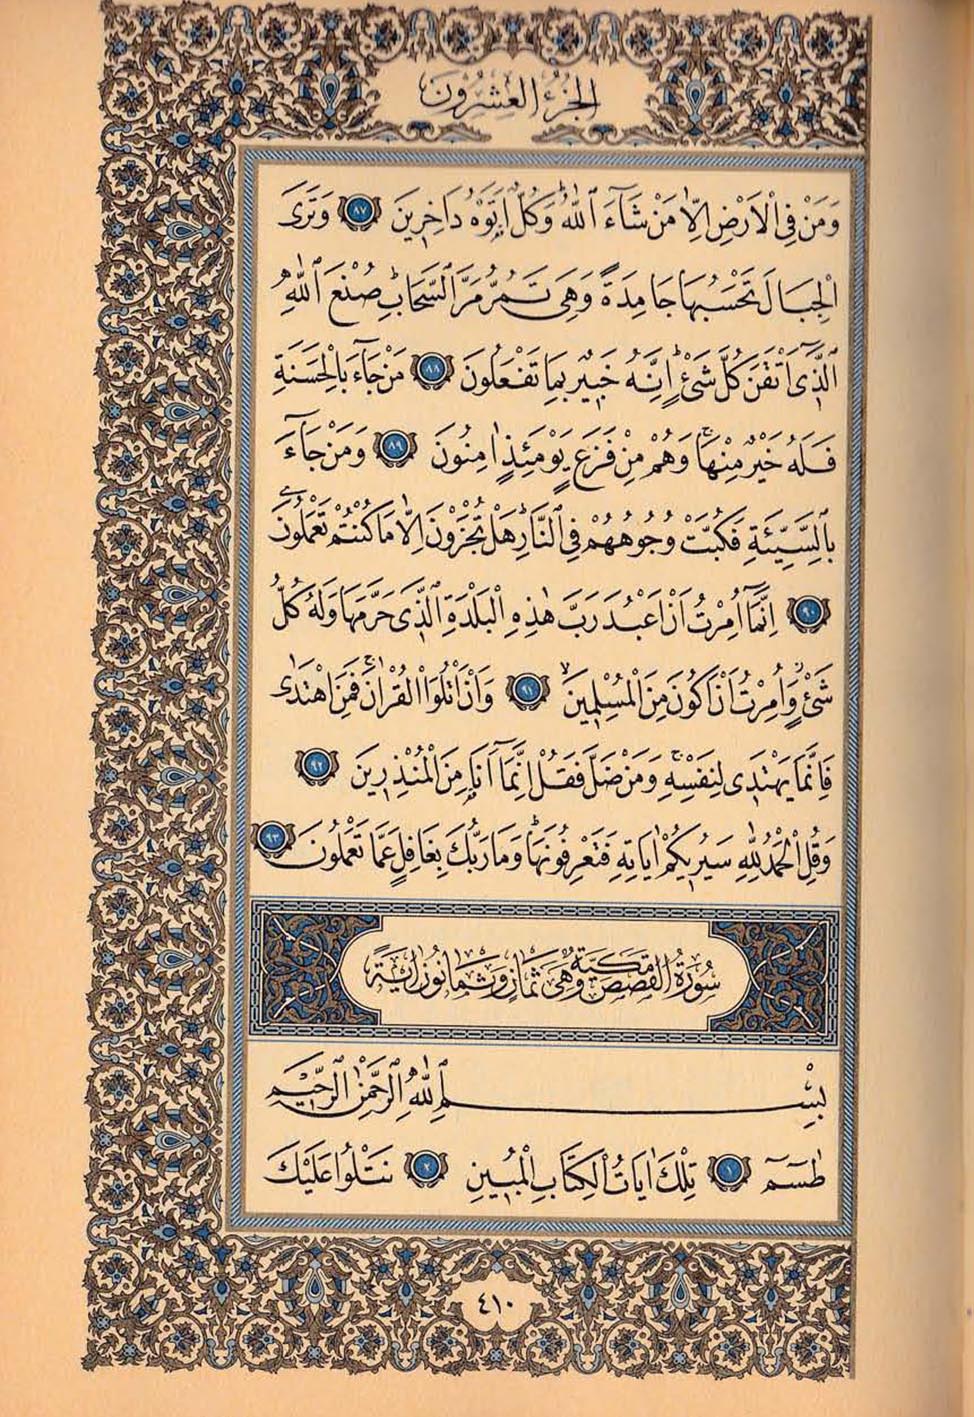 الجزء العشرون
وَمَنْ فِي الْاَرْضِ اِلَّا مَنْ شَٓاءَ اللّٰهُ وَكُلٌّ اَتَوْهُ دَاخِرٖينَ ﴿٨٧﴾ وَتَرَى
الْجِبَالَ تَحْسَبُهَا جَامِدَةً وَهِيَ تَمُرُّ مَرَّ السَّحَابِ صُنْعَ اللّٰهِ
الَّذٖٓي اَتْقَنَ كُلَّ شَيْءٍ اِنَّهُ خَبٖيرٌ بِمَا تَفْعَلُونَ ﴿٨٨﴾ مَنْ جَٓاءَ بِالْحَسَنَةِ
فَلَهُ خَيْرٌ مِنْهَا وَهُمْ مِنْ فَزَعٍ يَوْمَئِذٍ اٰمِنُونَ ﴿٨٩﴾ وَمَنْ جَٓاءَ
بِالسَّيِّئَةِ فَكُبَّتْ وُجُوهُهُمْ فِي النَّارِ هَلْ تُجْزَوْنَ اِلَّا مَا كُنْتُمْ تَعْمَلُونَ
﴿٩٠﴾ اِنَّمَٓا اُمِرْتُ اَنْ اَعْبُدَ رَبَّ هٰذِهِ الْبَلْدَةِ الَّذٖي حَرَّمَهَا وَلَهُ كُلُّ
شَيْءٍ وَاُمِرْتُ اَنْ اَكُونَ مِنَ الْمُسْلِمٖينَ ﴿٩١﴾ وَاَنْ اَتْلُوَا الْقُرْاٰنَ فَمَنِ اهْتَدٰى
فَاِنَّمَا يَهْتَدٖي لِنَفْسِهٖ وَمَنْ ضَلَّ فَقُلْ اِنَّمَٓا اَنَا مِنَ الْمُنْذِرٖينَ ﴿٩٢﴾
وَقُلِ الْحَمْدُ لِلّٰهِ سَيُرٖيكُمْ اٰيَاتِهٖ فَتَعْرِفُونَهَا وَمَا رَبُّكَ بِغَافِلٍ عَمَّا تَعْمَلُونَ ﴿٩٣﴾
سُورَةُ الْقَصَصِ مَكِّيَّةٌ وَهِيَ ثَمَانٍ وَثَمَانُونَ اٰيَةً
بِسْمِ اللّٰهِ الرَّحْمٰنِ الرَّحٖيمِ
طٰسٓمٓ ﴿١﴾ تِلْكَ اٰيَاتُ الْكِتَابِ الْمُبٖينِ ﴿٢﴾ نَتْلُوا عَلَيْكَ
٤١٠